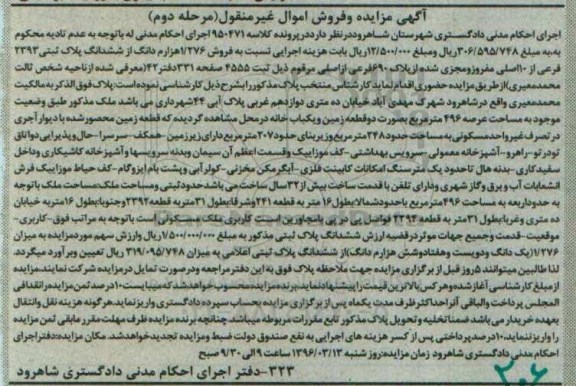 آگهی مزایده وفروش اموال غیرمنقول(مرحله دوم)
اجرای احکام مدنی دادگستری شهرستان شاهروددرنظر دارددرپرونده کلاسه ۹۵۰۴۷۱ اجرای احکام مدنی له باتوجه به عدم تادیه محکوم
به،به مبلغ ۳۰۶/۵۹۵/۷۴۸ریال ومبلغ ۱۲/۵۰۰/۰۰۰ریال بابت هزینه اجرایی نسبت به فروش ۱/۲۷۶هزارم دانگ از ششدانگ پلاک ثبتی ۲۳۹۳
فرعی از ۱۰اصلی مفروزومجزی شده ازپلاک ۶۹۰فرعی ازاصلی مرقوم ذیل ثبت ۴۵۵۵ صفحه ۳۳۱دفتر۴۲(معرفی شده ازناحیه شخص ثالث
محمدمعیری)از طریق مزایده حضوری اقدام نماید.کارشناس منتخب پلاک مذکوررابشرح ذیل کارشناسی نموده است:پلاک فوق الذکر به مالکیت
محمدمعیری واقع درشاهرود شهرک مهدی آباد خیابان ده متری دوازدهم غربی پلاک آبی ۴۴شهرداری می باشد ملک مذکور طبق وضعیت
موجود به مساحت عرصه ۴۹۶ مترمربع بصورت دوقطعه زمین ویکباب خانه درمحل مشاهده گردیده که قطعه زمین محصورشده با دیوار آجری
در تصرف غیرواحدمسکونی به مساحت حدود۲۴۸مترمربع وزیربنای حدود۲۰۷مترمربع دارای زیرزمین-همکف-سرسرا-حال وپذیرایی دواتاق
تودرتو-راهرو-آشپزخانه معمولی-سرویس بهداشتی-کف موزاییک وقسمت اعظم آن سیمان وبدنه سرویسها وآشپزخانه کاشیکاری وداخل
سفیدکاری-بدنه هال تاحدود یک متر سنگ امکانات کابینت فلزی-آبگرمکن مخزنی-کولرآبی وپشت بام ایزوگام-کف حیاط موزاییک فرش
انشعابات آب و برق وگاز شهری ودارای تلفن با قدمت ساخت بیش از۳۲سال ساخت می باشد.حدودثبتی ومساحت ملک:مساحت ملک باتوجه
به حدوداربعه به مساحت ۴۹۶مترمربع باحدودشمالابطول ۱۶ متر به قطعه ۲۴۱وشرقابطول ۳۱متر به قطعه۲۳۹۲وجنوبابطول ۱۶متربه خیابان
ده متری وغربابطول ۳۱متر به قطعه ۲۳۹۴ فواصل پی درپی باپنجاورین است کاربری ملک:مسکونی است باتوجه به مراتب فوق-کاربری-
موقعیت-قدمت وجمیع جهات موثردرقضیه ارزش ششدانگ پلاک ثبتی مذکور به مبلغ ۱/۵۰۰/۰۰۰/۰۰۰ریال وارزش سهم موردمزایده به میزان
۱/۲۷۶(یک دانگ ودویست وهفتادوشش هزارم دانگ)از ششدانگ پلاک ثبتی اعلامی به میزان ۳۱۹/۰۹۵/۷۴۸ ریال تعیین وبرآورد میگردد.
لذا طالبین میتوانند ۵روز قبل از برگزاری مزایده جهت ملاحظه پلاک فوق به این دفتر مراجعه ودرصورت تمایل درمزایده شرکت نمایند.مزایده
از مبلغ کارشناسی آغازشده وهرکس بالاترین قیمت راپیشنهادنماید برنده مزایده محسوب خواهدشد که میبایست ۱۰درصدثمن مزایده رافی
المجلس پرداخت والباقی آنراحداکثر ظرف مدت یکماه پس از برگزاری مزایده بحساب سپرده دادگستری واریزنماید.هرگونه هزینه نقل وانتقال
بعهده خریدار می باشد.ضمناتخلیه وتحویل پلاک مذکور تابع مقررات مربوطه میباشد.چنانچه برنده مزایده ظرف مهلت مقرر مابقی ثمن مزایده
را واریزننماید۱۰درصدپرداختی پس از کسر هزینه های اجرایی به نفع صندوق دولت ضبط ومزایده تجدیدخواهدشد. مکان مزایده:دفتراجرای
احکام مدنی دادگستری شاهرود زمان مزایده:روز شنبه ۱۳۹۶/۰۳/۱۳ ساعت ۹ الی ۹/۳۰ صبح
۳۲۳-دفتر اجرای احکام مدنی دادگستری شاهرود
۲۰۶